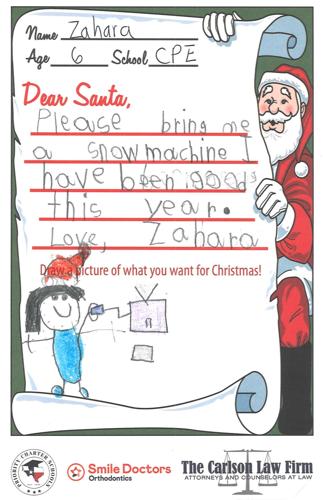 Name Zahara
Age 6 School CPE
Dear Santa,
Please bring me
a snowmachine I
have been good
this year.
Love, Zahara
Draw a picture of what you want for Christmas!
PRIORITY CHARTER SCHOOLS
Smile Doctors
Orthodontics
The Carlson Law Firm
ATTORNEYS AND COUNSELORS AT LAW